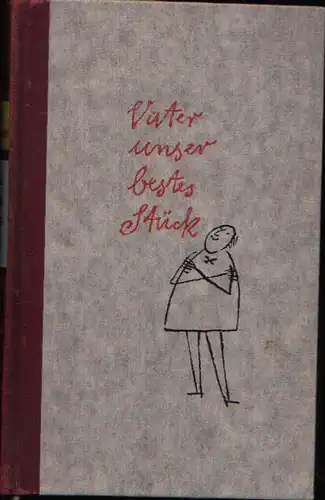 Vater
unser
bestes
Stück